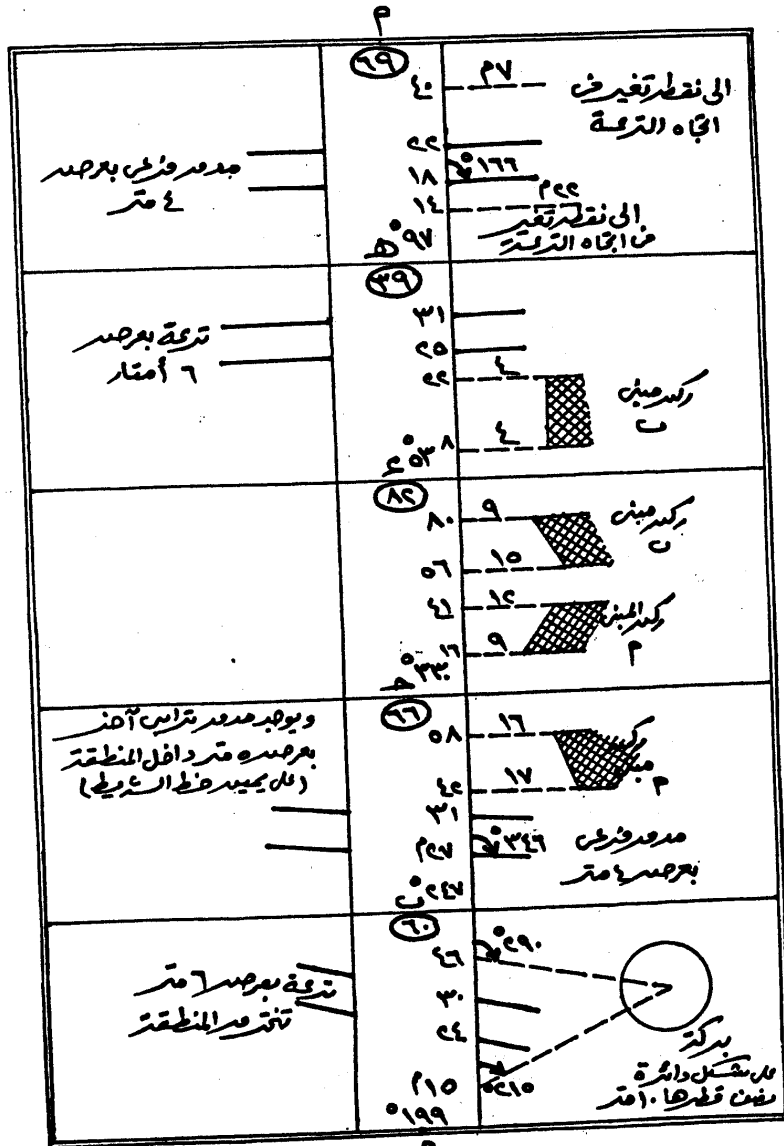 م
٦٩
٤٠
٧م
الى نقطة تغير فى
اتجاه الترعة
٢٢
١٦٦°
١٨
مدور فرعى بعرض
٤ متر
١٤
٢٢م
الى نقطة تغير
فى اتجاه الترعة
٩٧° ه
٣٩
٣١
ترعة بعرض
٦ أمتار
٢٥
٢٢
٤
ركن مبنى
ب
٨
٤
٥٣°
٨٢
٨٠
٩
ركن مبنى
ب
٥٦
١٥
٤١
١٢
ركن المبنى
م
١٦
٩
٣٣٠°
٦٦
ويوجد مدور ترابى آخر
بعرض ٥ متر داخل المنطقة
(على يمين خط الشريط)
٥٨
١٦
ركن
مبنى
م
٤٢
١٧
٣١
٣٤٦°
٢٧م
مدور فرعى
بعرض ٤ متر
٢٤٧° ب
٦٠
٤٦
٢٩٠°
ترعة بعرض ٦ متر
تخترق المنطقة
٣٠
٢٤
بركة
على شكل دائرة
نصف قطرها ١٠متر
٢١٥°
١٥م
١٩٩°